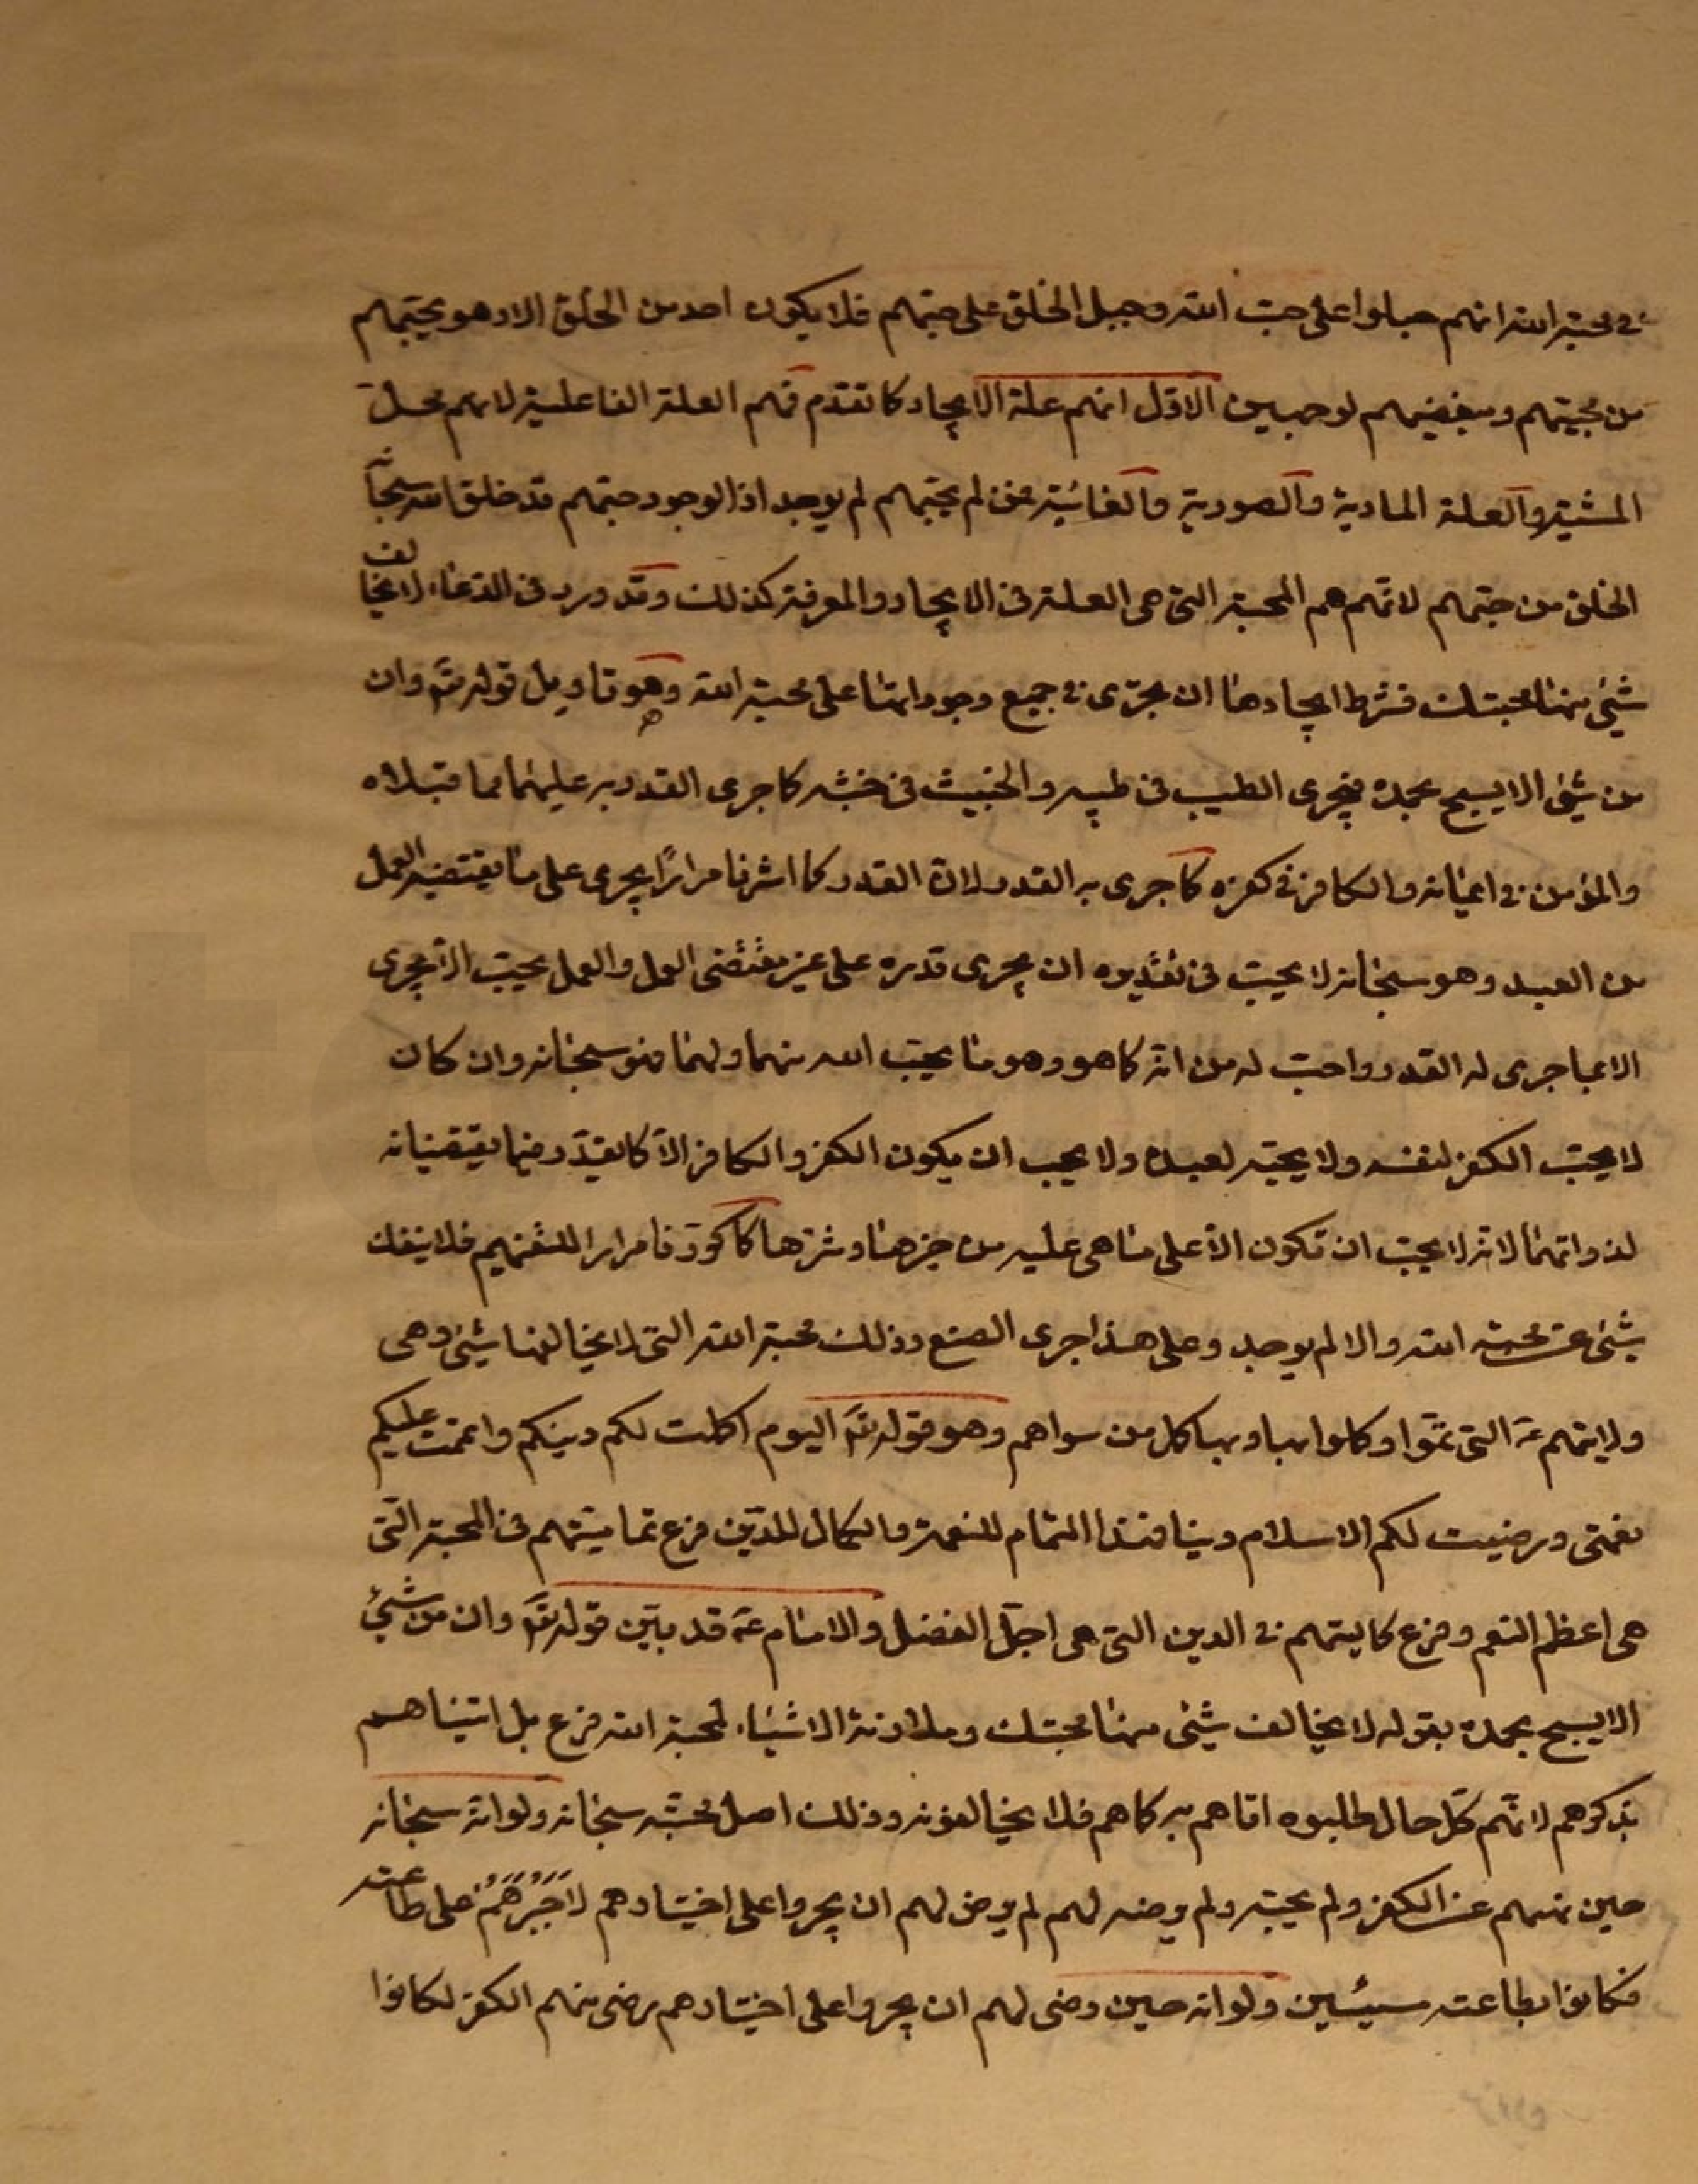 في محبة الله انهم جبلوا على حب الله وجبل الخلق على حبهم فلا يكون احد من الخلق الا وهو يحبهم
من محبيهم ومبغضيهم لوجهين الاول انهم علة الايجاد كما تقدم فهم العلة الفاعلية لانهم محل
المشية والعلة المادية والصورية والغائية فمن لم يحبهم لم يوجد اذ الوجود حبهم قد خلق الله سبحانه
الخلق من حبهم لانهم هم المحبة التي هي العلة في الايجاد والمعرفة كذلك وقد ورد في الدعاء لا يخالف
شيئ منها محبتك فشرط ايجادها ان يجري في جميع وجوداتها على محبة الله وهو تاويل قوله تع وان
من شيئ الا يسبح بحمده فيجري الطيب في طيبه والخبيث في خبثه كما جرى القدر به عليهما فيما قبلاه
والمؤمن في ايمانه والكافر في كفره كما جرى به القدر لان القدر كما اشرنا مرارًا يجري على ما يقتضيه العمل
من العبد وهو سبحانه لا يحب في تقديره ان يجري قدره على غير مقتضى العمل والعمل يحب الا يجري
الا بما جرى له القدر واحب له من انه كما هو وهو ما يحب الله منهما ولهما فهو سبحانه وان كان
لا يحب الكفر لنفسه ولا يحبه لعبده ولا يحب ان يكون الكفر والكافر الا كما يقدر فيما يقتضيانه
لذواتهما لانه لا يحب ان تكون الا على ما هي عليه من خيرها وشرها كما كررنا مرارا للتفهيم فلا ينفك
شيئ عن محبة الله والا لم يوجد وعلى هذا جرى الصنع وذلك محبة الله التي لا يخالفها شيئ وهي
ولايتهم ع التي تموا وكملوا بها وبها كل من سواهم وهو قوله تع اليوم اكملت لكم دينكم واتممت عليكم
نعمتي ورضيت لكم الاسلام دينا فهذا التمام للنعمة والكمال للدين فرع تماميتهم في المحبة التي
هي اعظم النعم وفرع كماليتهم في الدين التي هي اجل الفضل والامام ع قد بين قوله تع وان من شيئ
الا يسبح بحمده بقوله لا يخالف شيئ منها محبتك وملازمة الاشياء لمحبة الله فرع بل اتيناهم
بذكرهم لانهم كل حال طلبوه اتاهم به كما هم فلا يخالفونه وذلك اصل محبته سبحانه ولو انه سبحانه
حين نهيهم عن الكفر ولم يحبه ولم يرضه لهم لم يرض لهم ان يجروا على اختيارهم لَاَجْبَرَهُمْ على طاعته
فكانوا بطاعته مسيئين ولو انه حين رضى لهم ان يجروا على اختيارهم رضى منهم الكفر لكانوا